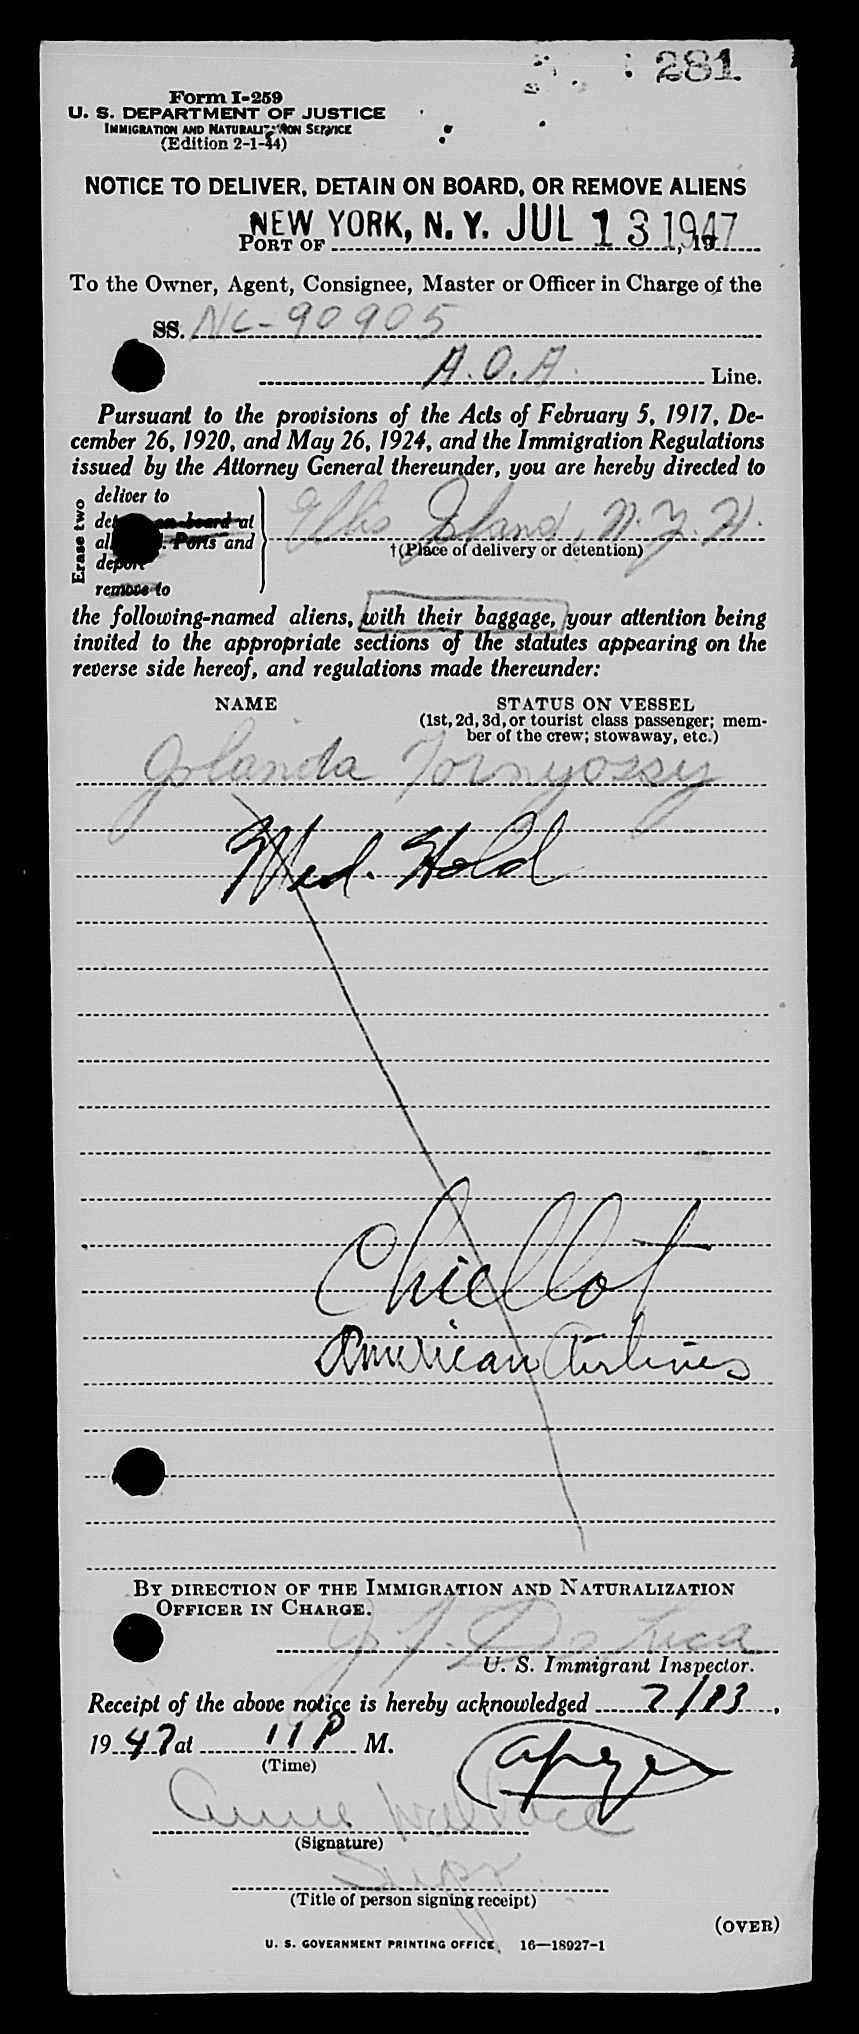 281
Form I-259
U. S. DEPARTMENT OF JUSTICE
IMMIGRATION AND NATURALIZATION SERVICE
(Edition 2-1-44)
NOTICE TO DELIVER, DETAIN ON BOARD, OR REMOVE ALIENS
NEW YORK, N. Y. JUL 13 1947
PORT OF , 19
To the Owner, Agent, Consignee, Master or Officer in Charge of the
SS. NC-90905
A.O.A. Line.
Pursuant to the provisions of the Acts of February 5, 1917, De-
cember 26, 1920, and May 26, 1924, and the Immigration Regulations
issued by the Attorney General thereunder, you are hereby directed to
Erase two
deliver to
on board at
Ports and
deport
remove to
Ellis Island, N.Y.H.
†(Place of delivery or detention)
the following-named aliens, with their baggage, your attention being
invited to the appropriate sections of the statutes appearing on the
reverse side hereof, and regulations made thereunder:
NAME STATUS ON VESSEL
(1st, 2d, 3d, or tourist class passenger; mem-
ber of the crew; stowaway, etc.)
Jolanda Tornyossy
Med. Hold
Chiellot
American Airlines
BY DIRECTION OF THE IMMIGRATION AND NATURALIZATION
OFFICER IN CHARGE.
J. De Luca
U. S. Immigrant Inspector.
Receipt of the above notice is hereby acknowledged 7/13,
19 47 at 11 P M.
(Time)
Anne Wallace
(Signature)
Supr.
(Title of person signing receipt)
(OVER)
U. S. GOVERNMENT PRINTING OFFICE 16—18927-1